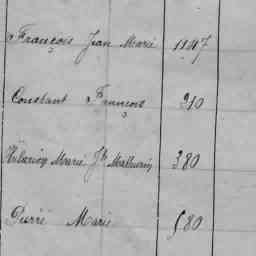 François Jean Marie 1147
Constant François 310
Hilarion Marie Jh Mathurin 380
Pierre Marie 580